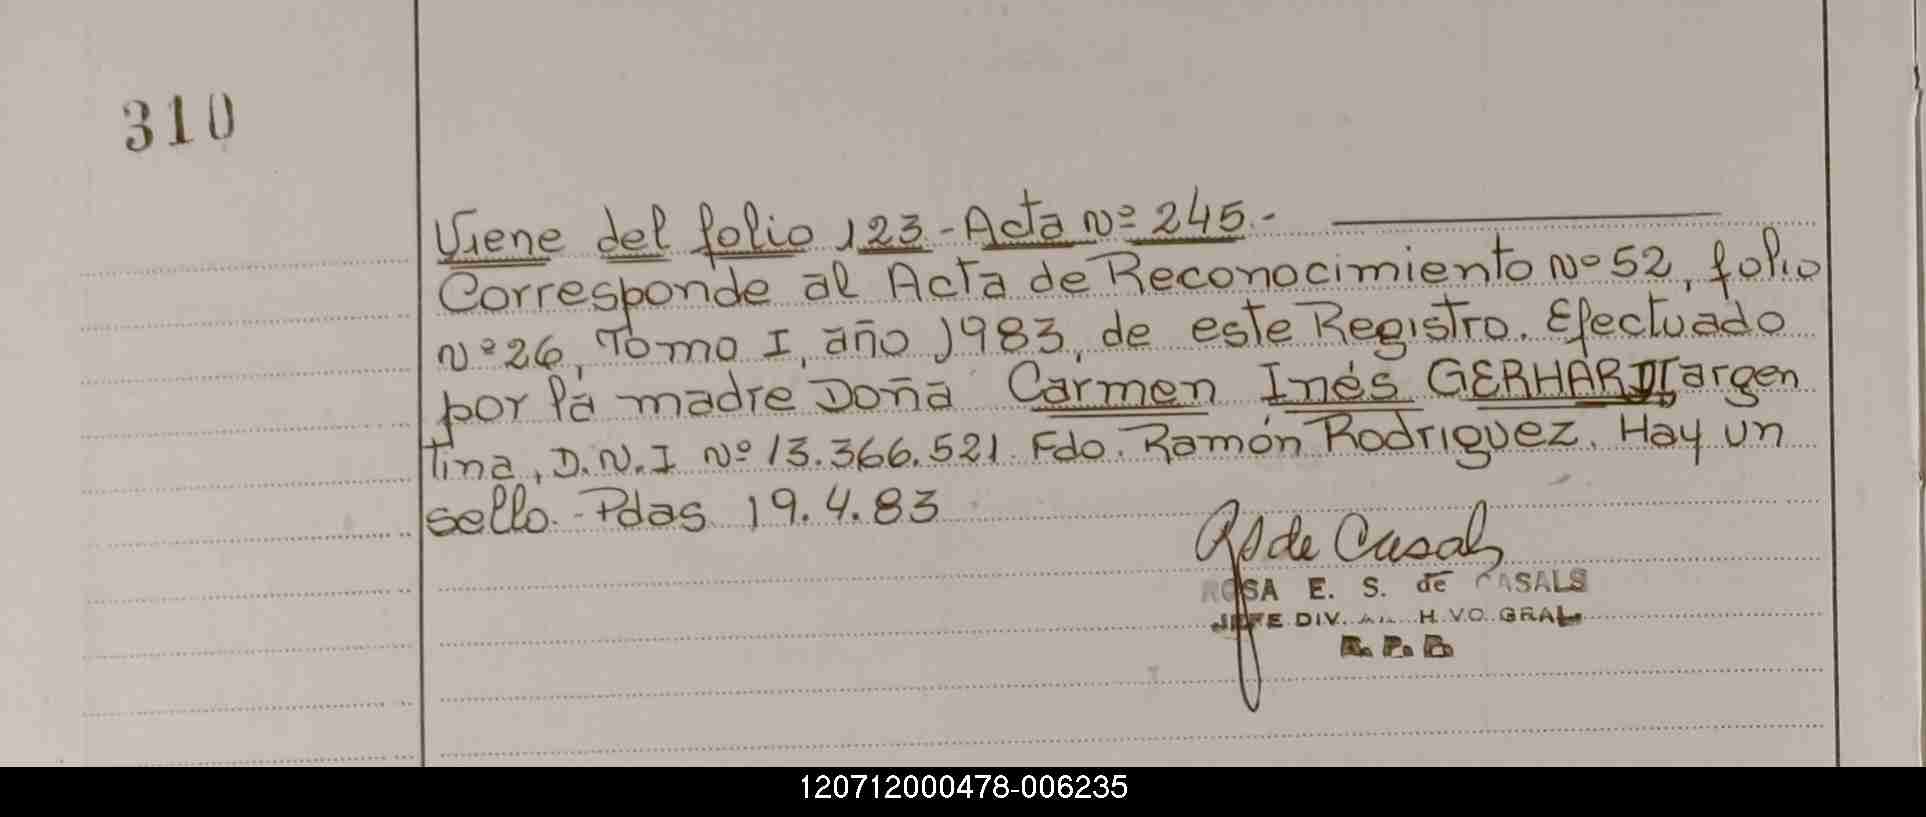 310
Viene del folio 123 - Acta Nº 245.-
Corresponde al Acta de Reconocimiento Nº 52, folio
Nº 26, Tomo I, año 1983, de este Registro. Efectuado
por la madre Doña Carmen Inés GERHARDT, argen
tina, D.N.I Nº 13.366.521. Fdo. Ramón Rodriguez. Hay un
sello.- Pdas 19.4.83
de Casals
ROSA E. S. de CASALS
JEFE DIV. GRAL
120712000478-006235